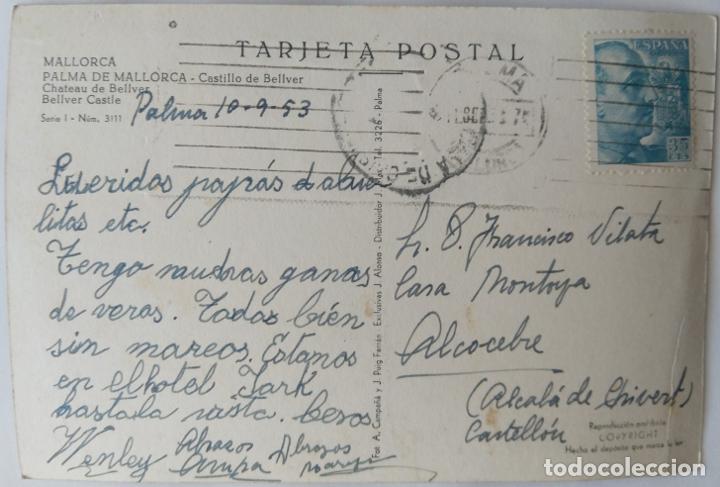 TARJETA POSTAL
MALLORCA
PALMA DE MALLORCA - Castillo de Bellver
Chateau de Bellver
Bellver Castle
Serie I - Núm. 3111
Palma 10-9-53
ESPAÑA
35
CTS
queridos papás
litos etc.
Tengo muchas ganas
de veros. Todos bién
sin mareos. Estamos
en el hotel
hasta la vista. besos
Wenley Abrazos Abrazos
Fot. A. Campañá y J. Puig Ferrán - Exclusivas J. Alonso - Distribuidor J. Tel. 3226 - Palma
Sr. D. Francisco Vilata
Casa Montoya
Alcocebre
(Alcalá de Chivert)
Castellón
Reproducción prohibida
COPYRIGHT
Hecho el depósito que marca la ley
todocoleccion
todocoleccion.net